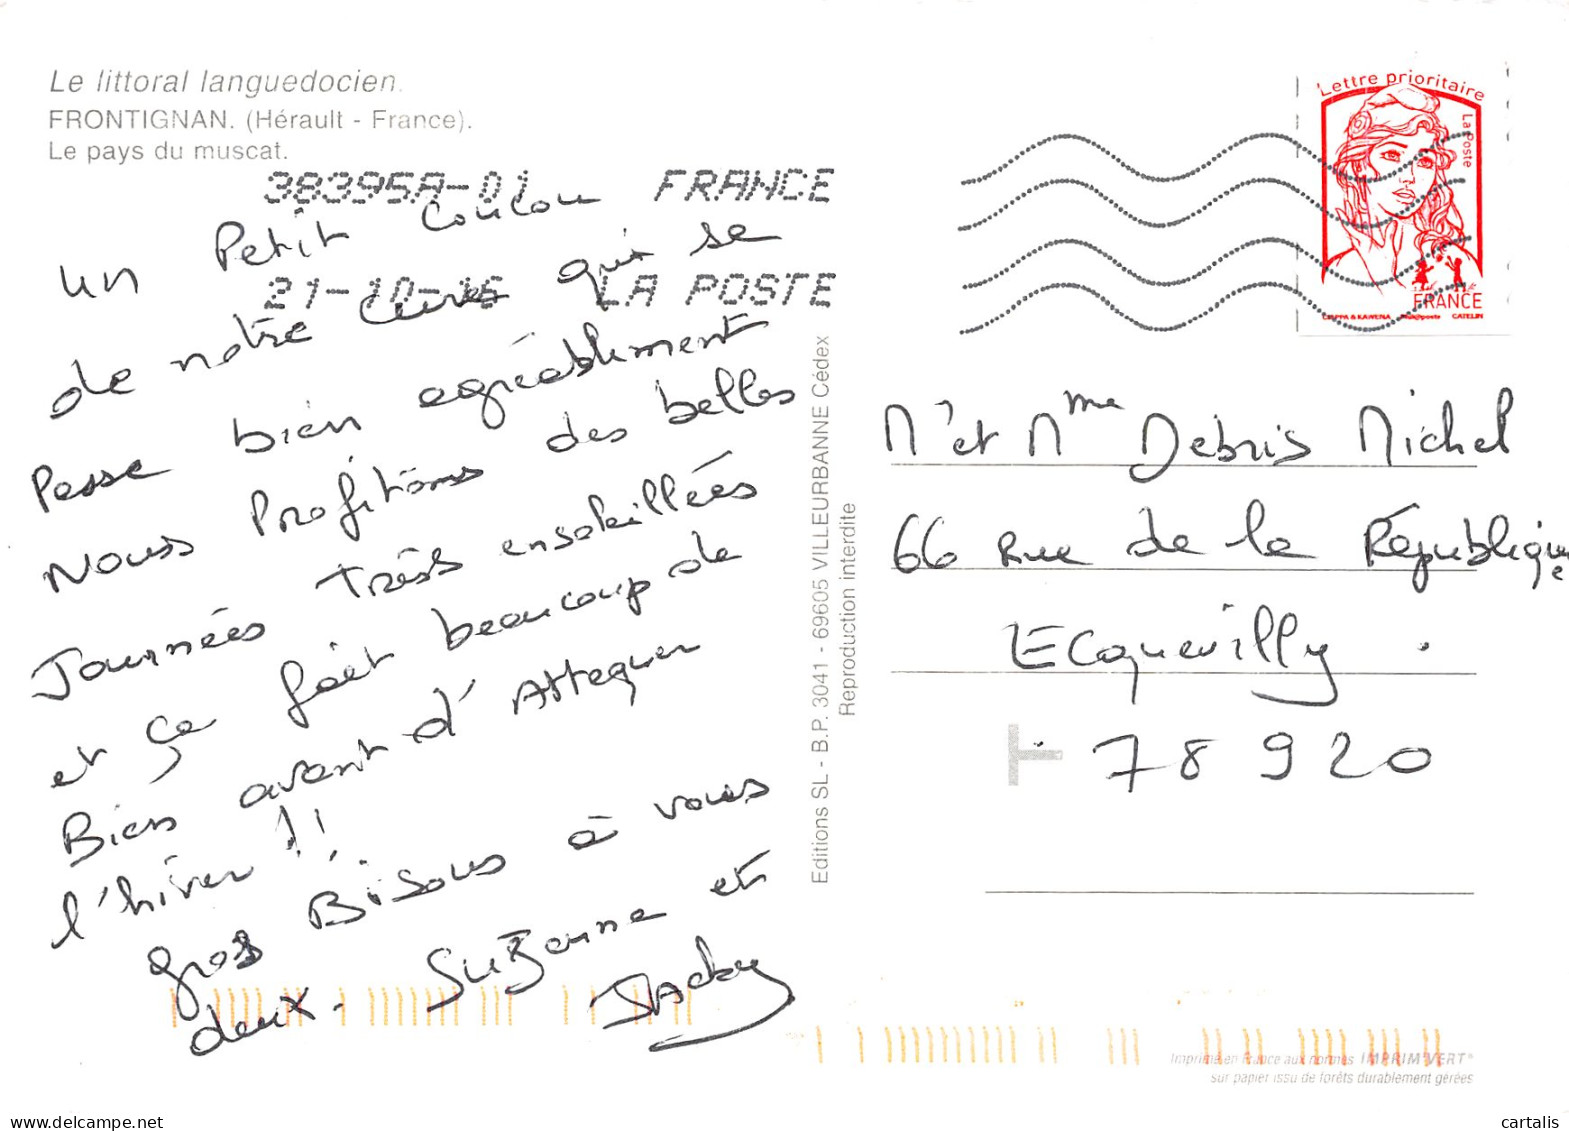 Le littoral languedocien.
FRONTIGNAN. (Hérault - France).
Le pays du muscat.
38395A-01 FRANCE
21-10-16 LA POSTE
un Petit coucou
de notre cure qui se
Passe bien agréablement
Nous Profitons des belles
Journées très ensoleillées
et ça fait beaucoup de
Bien avant d'Attaquer
l'hiver !!
gros Bisous à vous
deux. Suzanne et
Jacky
Editions SL - B.P. 3041 - 69605 VILLEURBANNE Cédex
Reproduction interdite
Lettre prioritaire
La Poste
FRANCE
CIAPPA & KAWENA
CATELIN
Mr et Mme Debris Michel
66 Rue de la République
Ecquevilly.
T 78920
Imprimé en France aux normes IMPRIM'VERT®
sur papier issu de forêts durablement gérées
cartalis